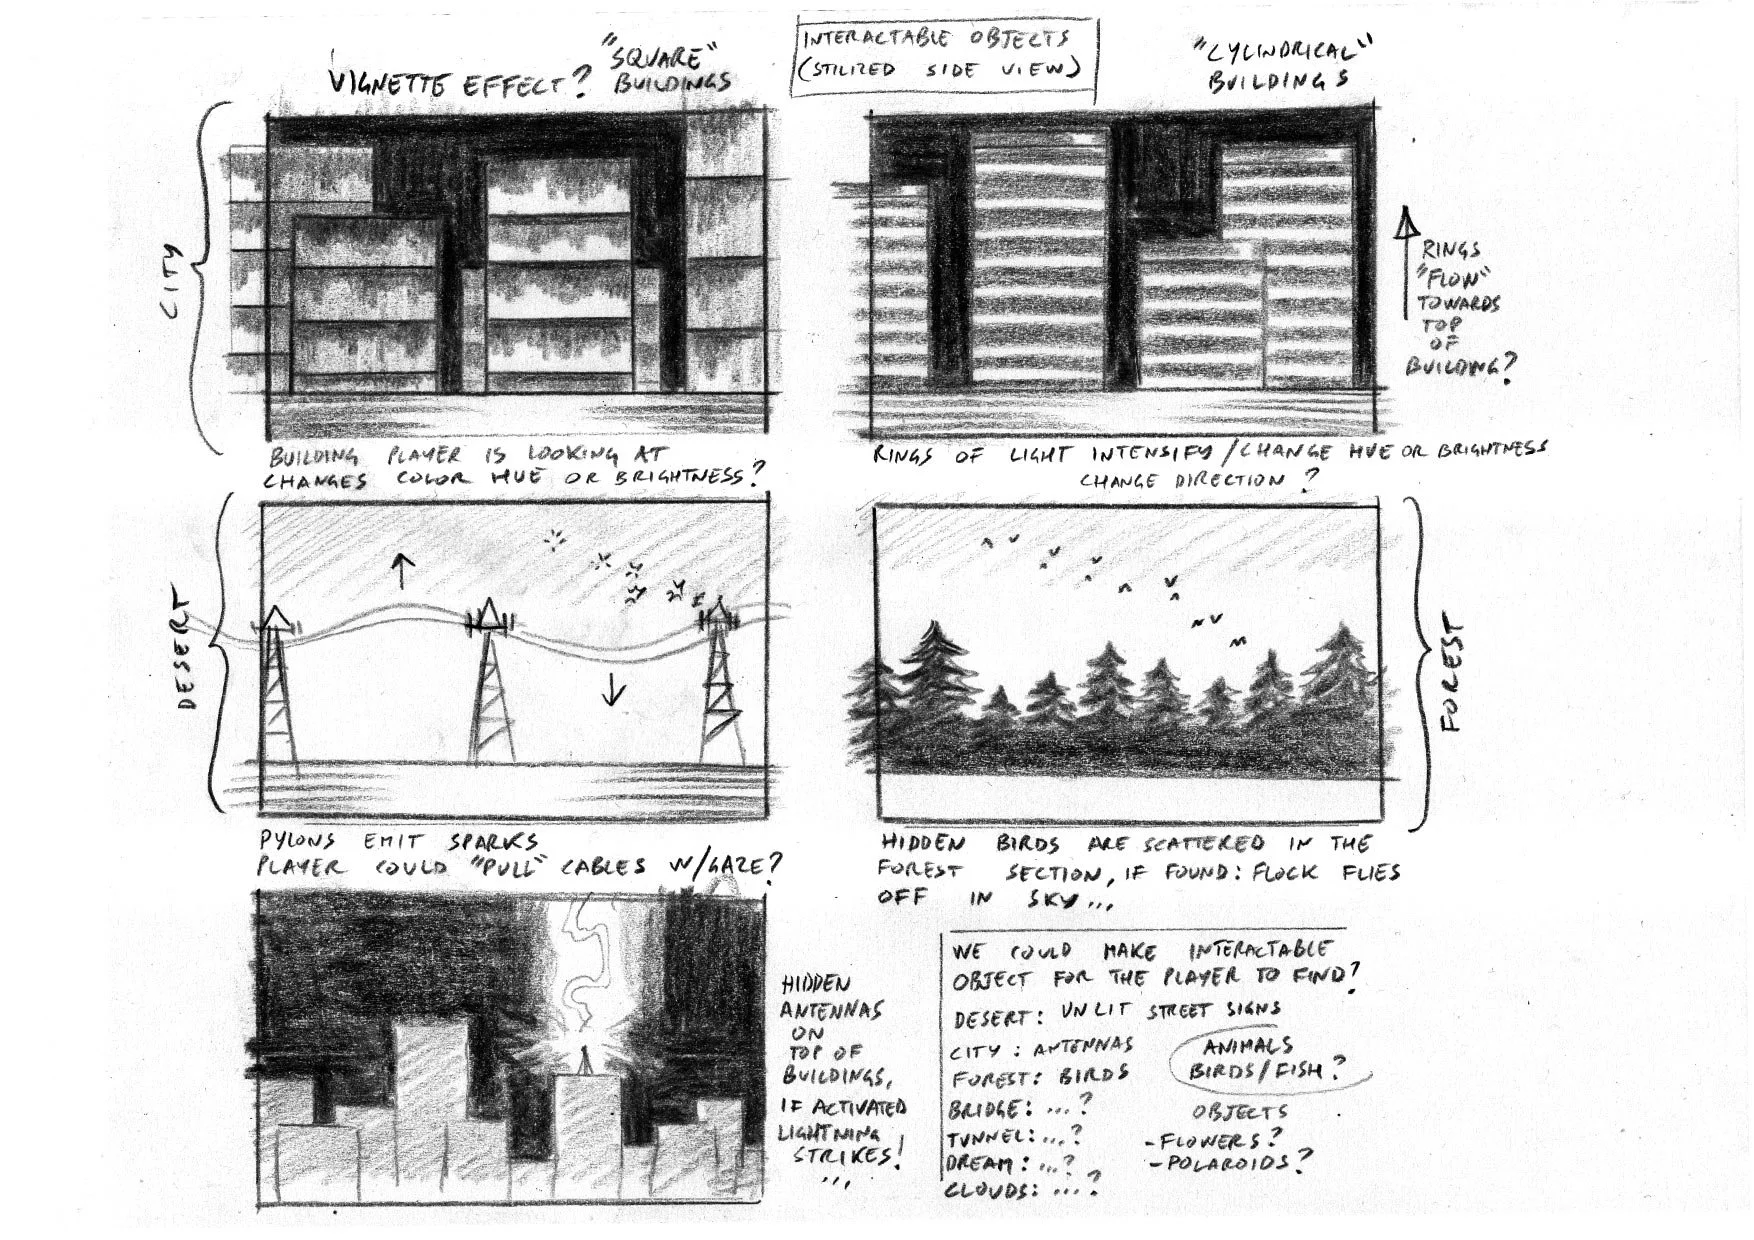 INTERACTABLE OBJECTS
(STILIZED SIDE VIEW)
VIGNETTE EFFECT?
"SQUARE"
BUILDINGS
"CYLINDRICAL"
BUILDINGS
CITY
BUILDING PLAYER IS LOOKING AT
CHANGES COLOR HUE OR BRIGHTNESS?
RINGS
"FLOW"
TOWARDS
TOP
OF
BUILDING?
RINGS OF LIGHT INTENSIFY/CHANGE HUE OR BRIGHTNESS
CHANGE DIRECTION?
DESERT
PYLONS EMIT SPARKS
PLAYER COULD "PULL" CABLES W/GAZE?
FOREST
HIDDEN BIRDS ARE SCATTERED IN THE
FOREST SECTION, IF FOUND: FLOCK FLIES
OFF IN SKY...
HIDDEN
ANTENNAS
ON
TOP OF
BUILDINGS,
IF ACTIVATED
LIGHTNING
STRIKES!
...
WE COULD MAKE INTERACTABLE
OBJECT FOR THE PLAYER TO FIND?
DESERT: UNLIT STREET SIGNS
CITY: ANTENNAS
FOREST: BIRDS
BRIDGE: ...?
TUNNEL: ...?
DREAM: ...?
CLOUDS: ...?
ANIMALS
BIRDS/FISH?
OBJECTS
-FLOWERS?
-POLAROIDS?